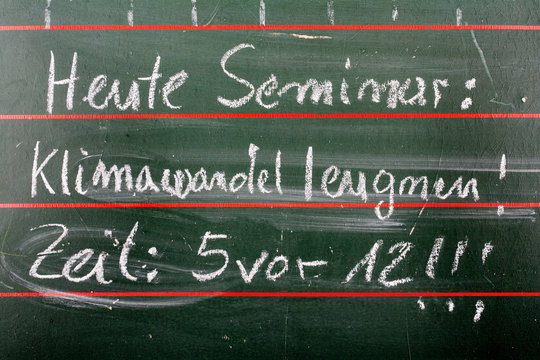 Heute Seminar:
Klimawandel leugnen!
Zeit: 5 vor 12!!!